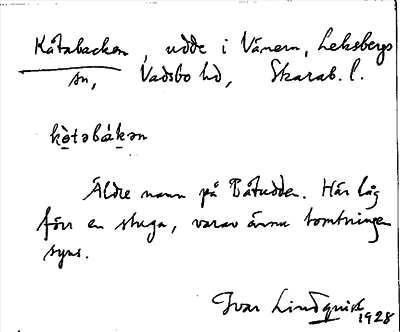 Kåtabacken, udde i Vänern, Leksbergs
sn, Vadsbo hd, Skarab. l.
kò̱təbák̠ən
Äldre namn på Båtudden. Här låg
förr en stuga, varav ännu tomtningen
syns.
Ivar Lindquist 1928